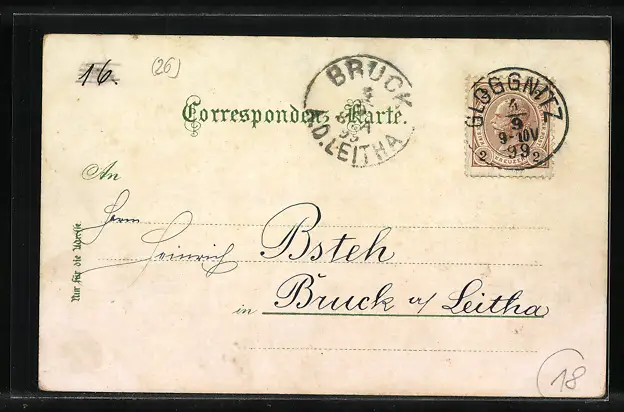 16.
(26)
BRUCK
A.D. LEITHA
Correspondenz-Karte.
GLOGGNITZ
4
9
9-10V
99
2 KREUZER 2
An
Herrn
Heinrich Bsteh
in Bruck a/ Leitha
Nur für die Adresse
18